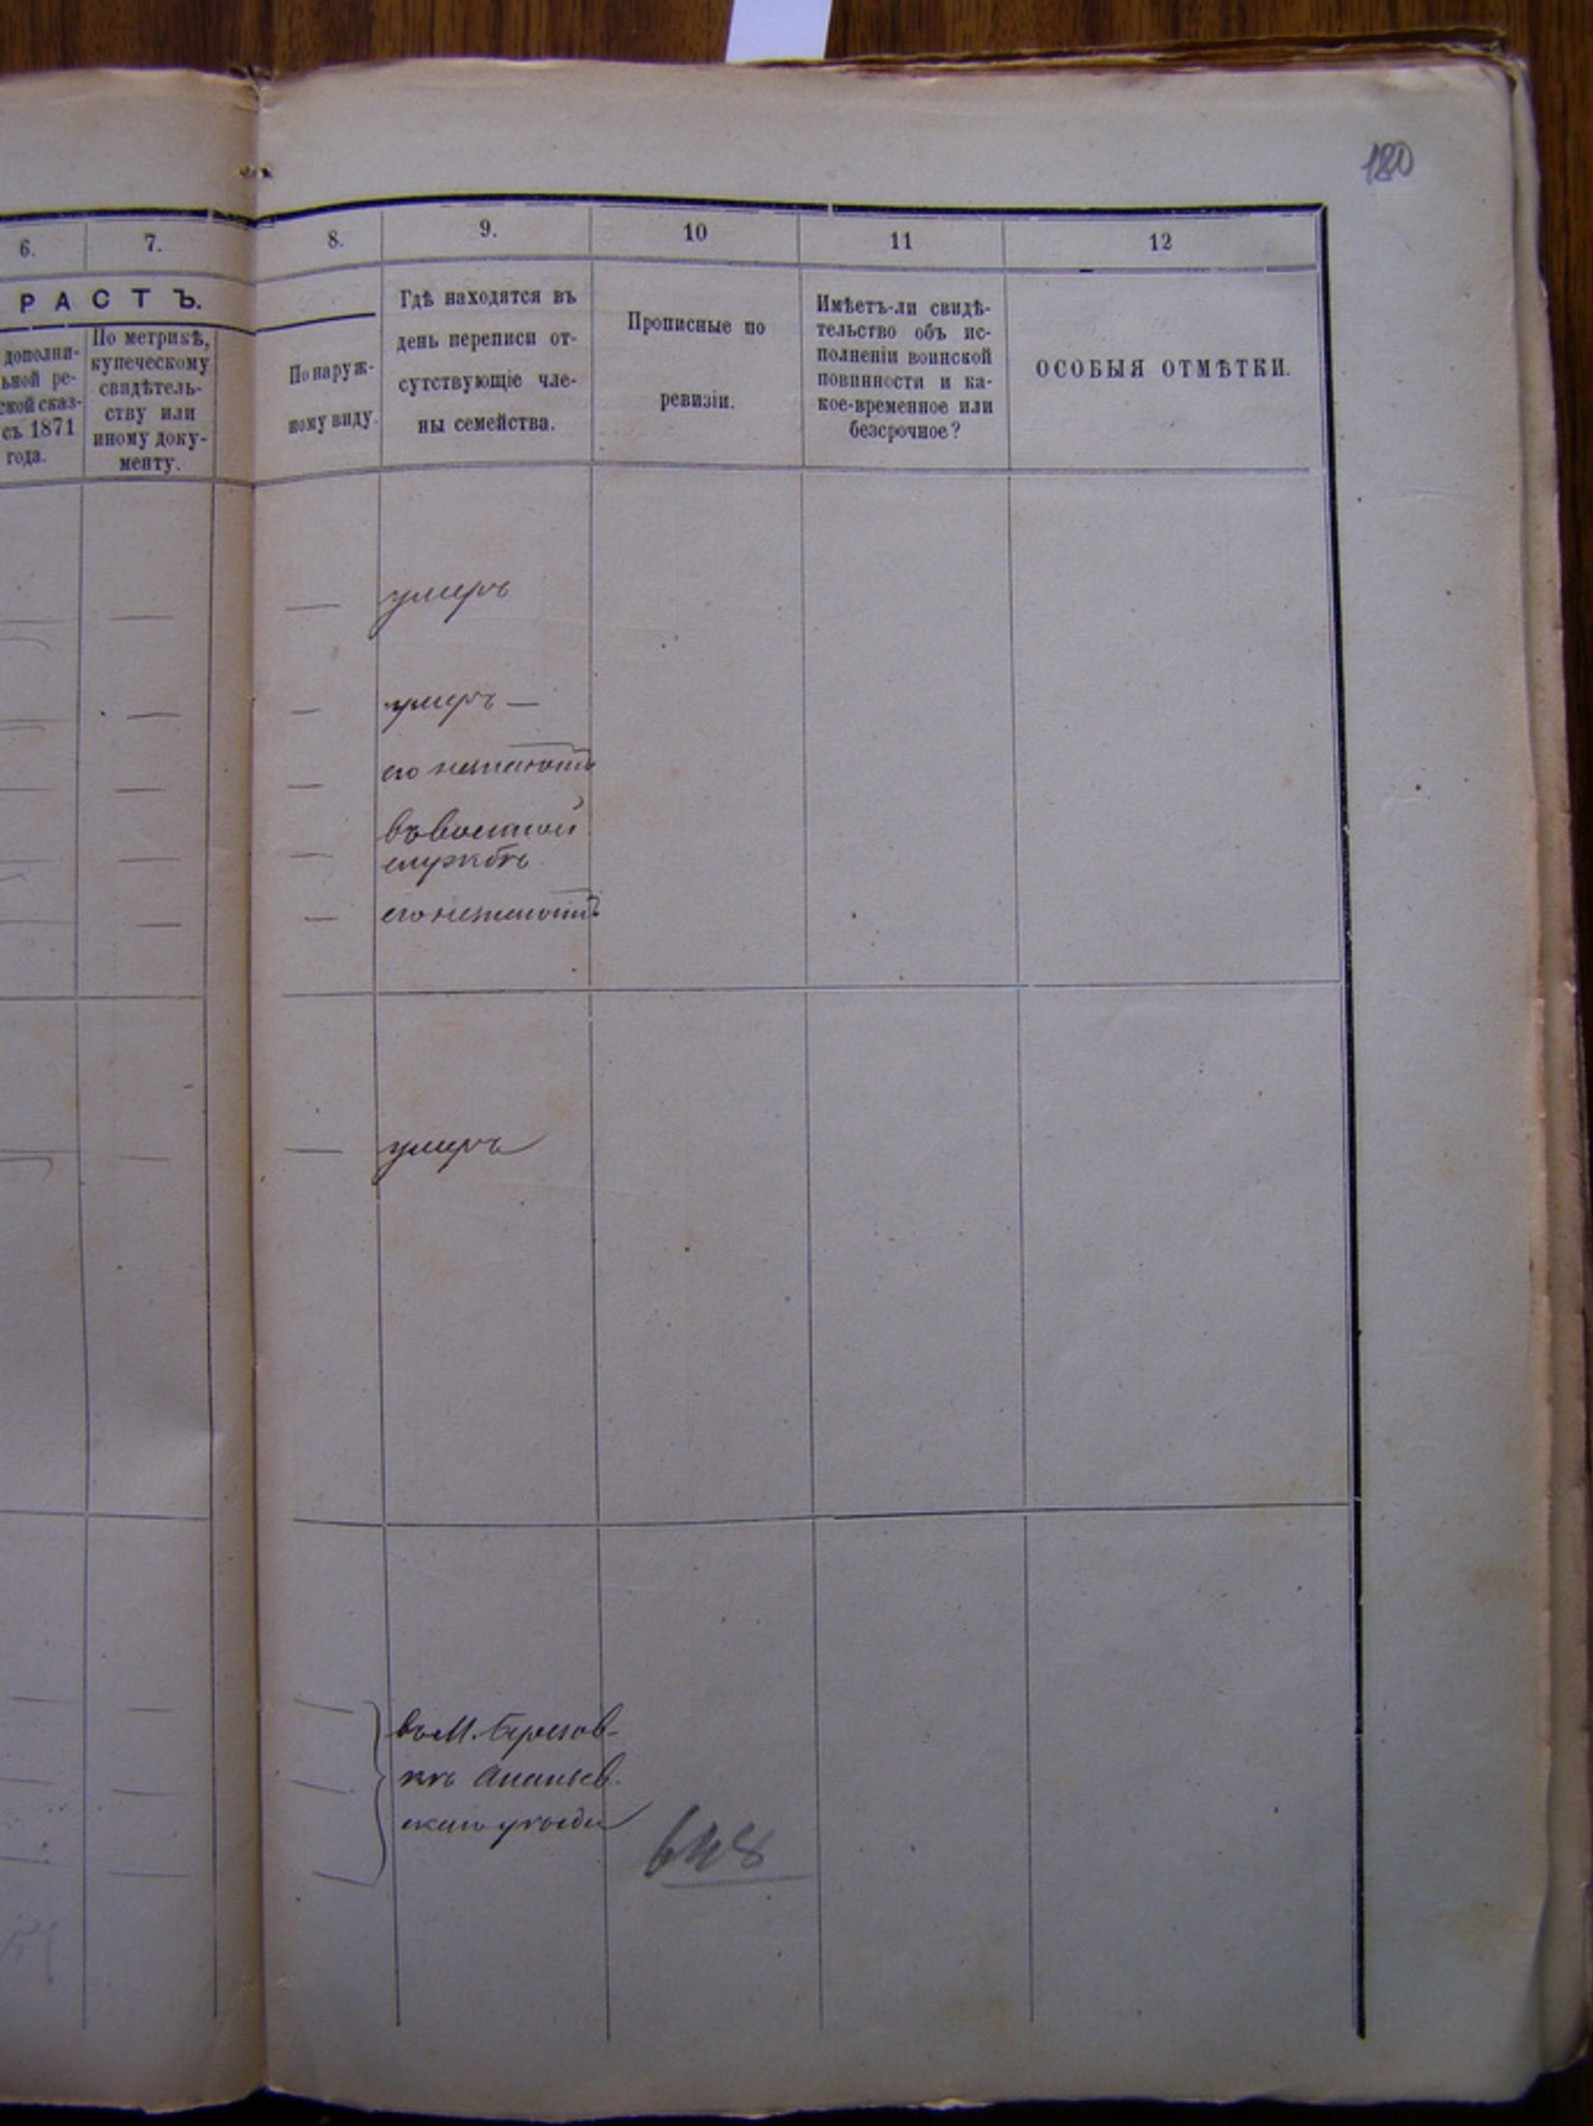 180
6.
7.
8.
9.
10
11
12
РАСТЪ.
дополни-
ьной ре-
ской сказ-
съ 1871
года.
По метрикѣ,
купеческому
свидѣтель-
ству или
иному доку-
менту.
По наруж-
ному виду.
Гдѣ находятся въ
день переписи от-
сутствующіе чле-
ны семейства.
Прописные по
ревизіи.
Имѣетъ-ли свидѣ-
тельство объ ис-
полненіи воинской
повинности и ка-
кое-временное или
безсрочное?
ОСОБЫЯ ОТМѢТКИ.
— — умеръ
— — умеръ —
— — его незнаютъ
въ военной
— — службѣ
— — его незнаютъ
— — умеръ
въ М. Березов-
кѣ Ананьев-
скаго уѣзда